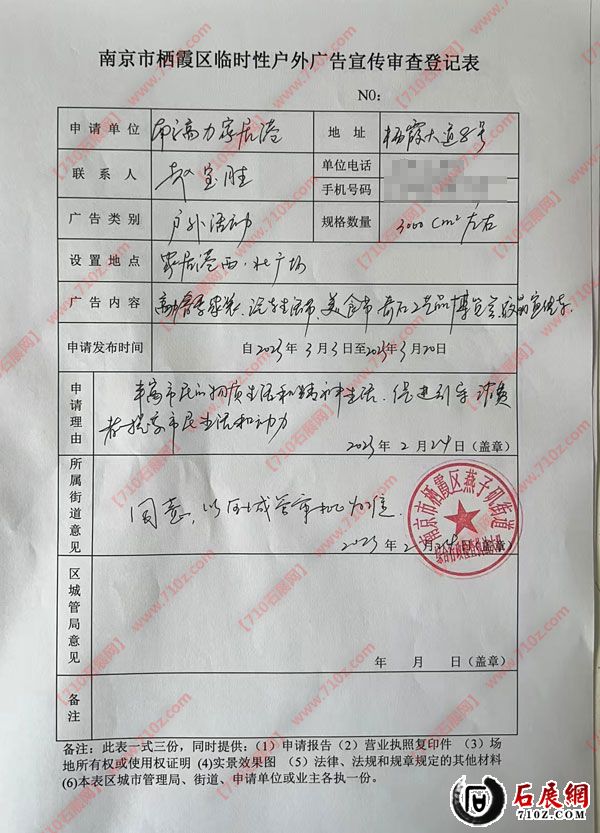 南京市栖霞区临时性户外广告宣传审查登记表
NO:
申请单位 南京高力家居港 地址 栖霞大道8号
联系人 赵宝胜 单位电话
手机号码
广告类别 户外活动 规格数量 3000 cm² 左右
设置地点 家居港西、北广场
广告内容 美食节 奇石工艺品博览会
申请发布时间 自2023年3月3日至2023年3月20日
申请理由 丰富市民的物质生活和精神生活、促进引导消费
市民生活和动力
2023年2月24日(盖章)
所属街道意见 同意,以区城管审批为准
2023年2月24日(盖章)
南京市栖霞区燕子矶街道
区城管局意见
年 月 日(盖章)
备注
备注:此表一式三份,同时提供:(1)申请报告(2)营业执照复印件 (3)场
地所有权或使用权证明 (4)实景效果图 (5)法律、法规和规章规定的其他材料
(6)本表区城市管理局、街道、申请单位或业主各执一份。
【710石展网】www.710z.com
石展網
710Z.COM